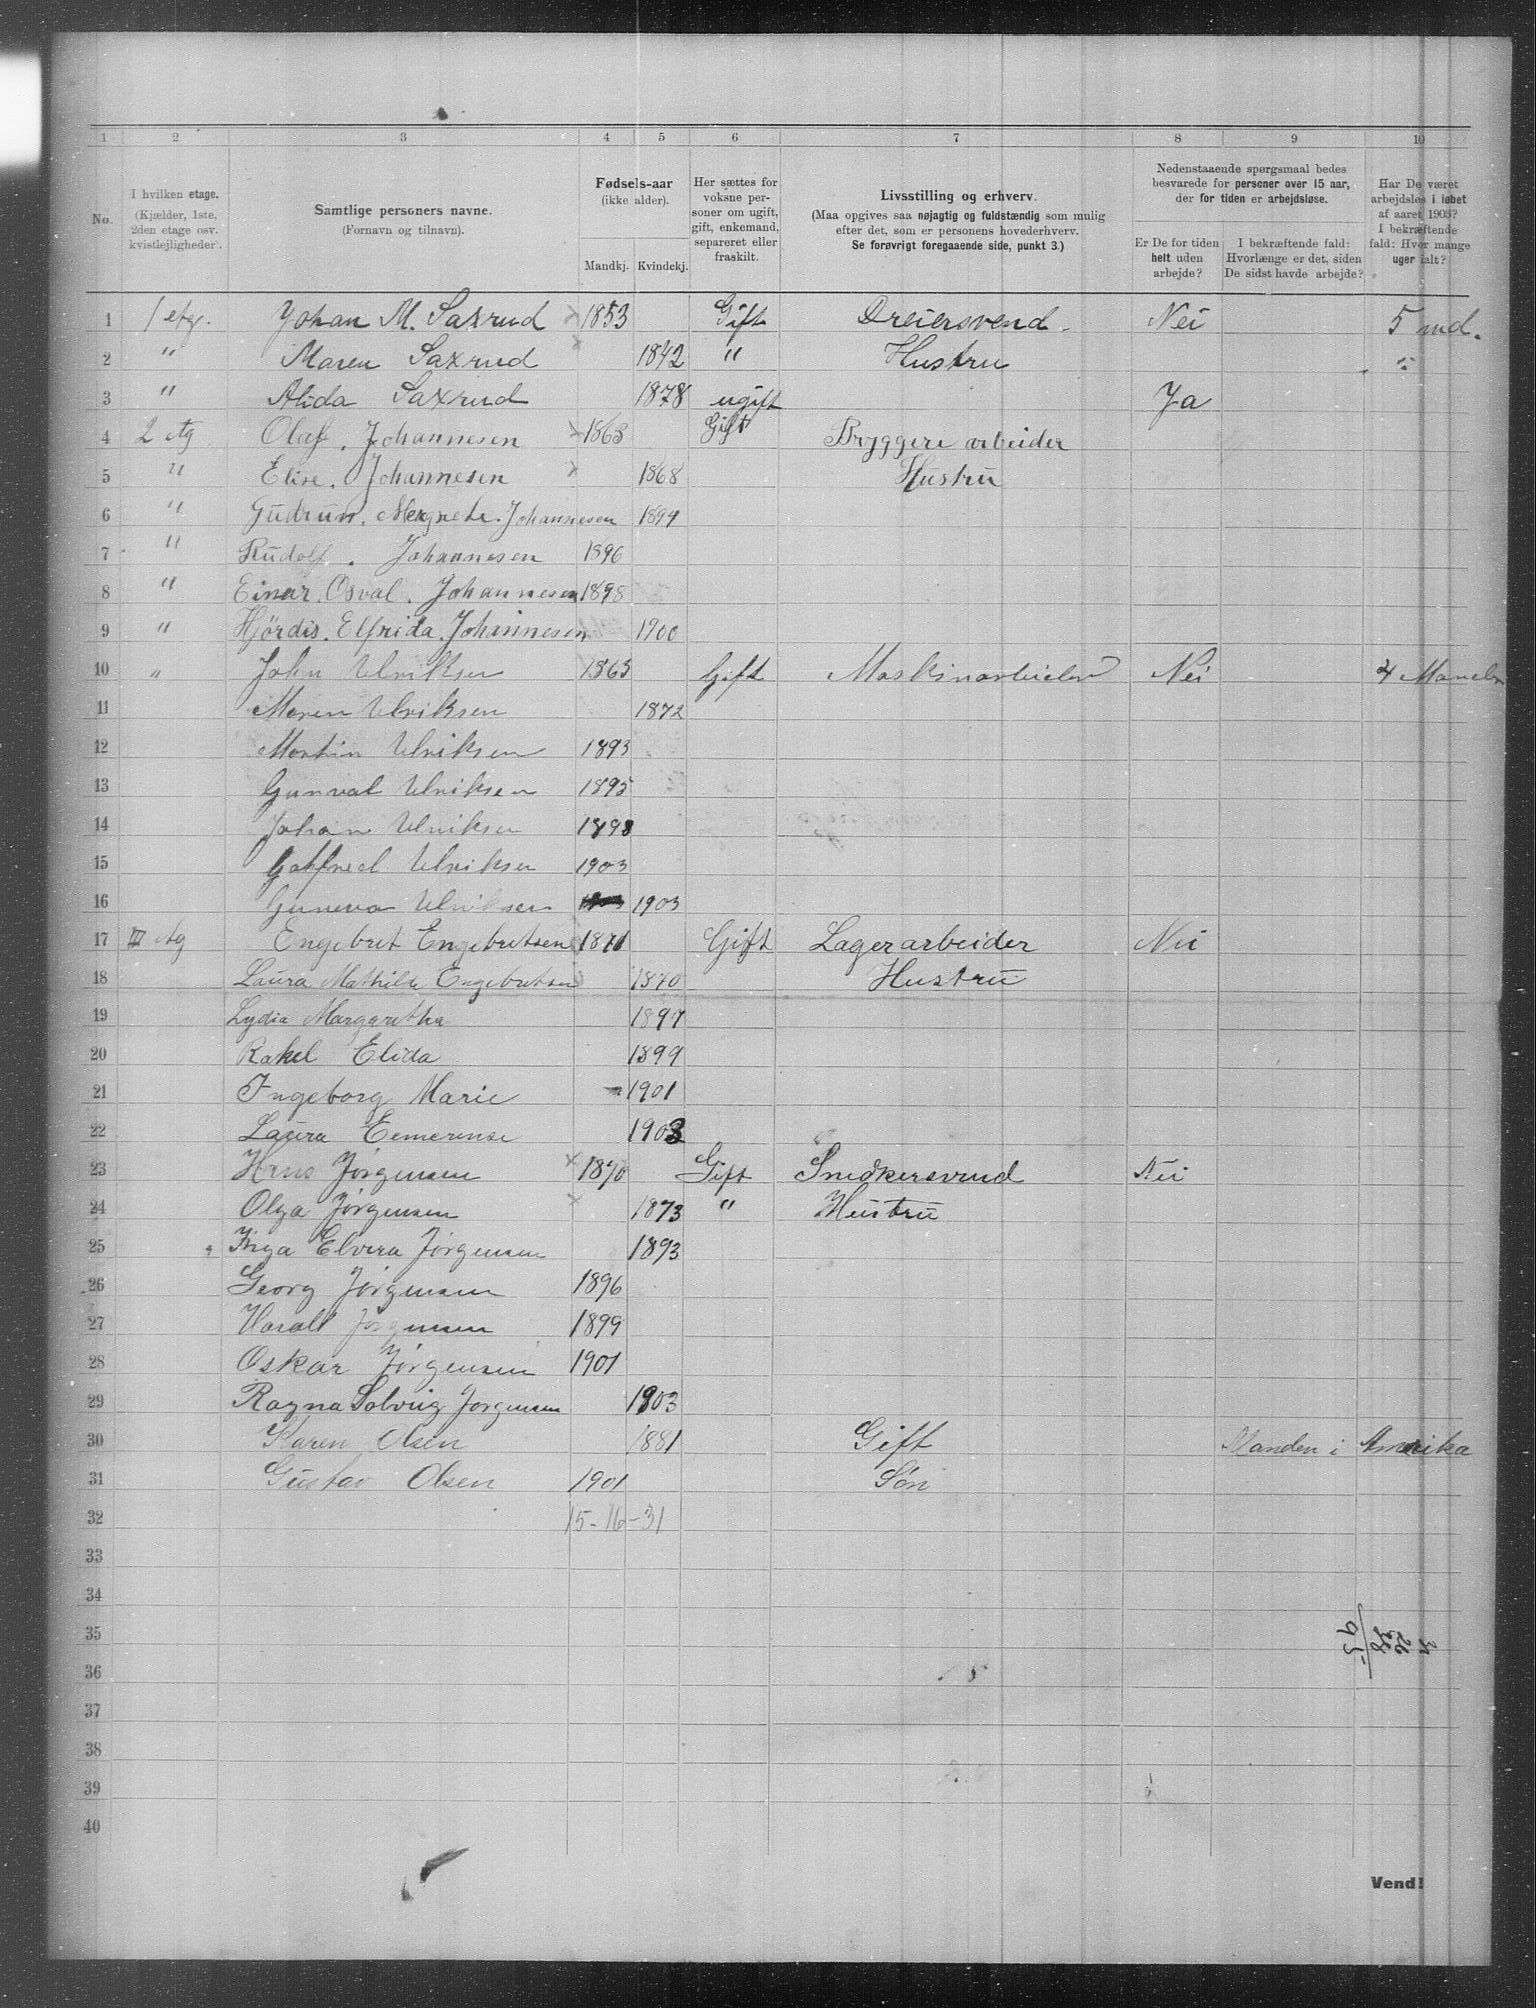 1 2 3 4 5 6 7 8 9 10
No.
I hvilken etage. (Kjælder, 1ste, 2den etage osv. kvistleiligheder).
Samtlige personers navne. (Fornavn og tilnavn).
Fødsels-aar (ikke alder).
Mandkj. Kvindekj.
Her sættes for voksne personer om ugift, gift, enkemand, separeret eller fraskilt.
Livsstilling og erhverv.
(Maa opgives saa nøjagtig og fuldstændig som mulig efter det, som er personens hovederhverv.
Se forøvrigt foregaaende side, punkt 3.)
Nedenstaaende spørgsmaal bedes besvarede for personer over 15 aar, der for tiden er arbejdsløse.
Er De for tiden helt uden arbejde?
I bekræftende fald: Hvorlænge er det, siden De sidst havde arbejde?
Har De været arbejdsløs i løbet af aaret 1903? I bekræftende fald: Hvor mange uger ialt?
1 1 etg. Johan M. Saxrud × 1853 Gift Dreiersvend Nei 5 md.
2 " Maren Saxrud × 1842 " Hustru "
3 " Alida Saxrud 1878 ugift Ja
4 2 etg Olaf. Johannesen × 1863 Gift Bryggeri arbeider
5 " Elise. Johannesen × 1868 Hustru
6 " Gudrun. Margrete. Johannesen 1894
7 " Rudolf. Johannesen 1896
8 " Einar. Osval. Johannesen 1898
9 " Hjördis. Elfrida. Johannesen 1900
10 " John Ulriksen 1863 Gift Maskinarbeider Nei 4 Maneder
11 Maren Ulriksen 1872
12 Martin Ulriksen 1893
13 Gunval Ulriksen 1895
14 Johan Ulriksen 1898
15 Gotfred Ulriksen 1903
16 Guneva Ulriksen 1903
17 III etg Engebret Engebretsen 1871 Gift Lagerarbeider Nei
18 Laura Mathilde Engebretsen 1870 Hustru
19 Lydia Margaretha 1897
20 Rakel Elida 1899
21 Ingeborg Marie 1901
22 Laura Eemerense 1903
23 Hans Jørgensen × 1870 Gift Snedkersvend Nei
24 Olga Jørgensen × 1873 " Hustru
25 Inga Elvira Jørgensen 1893
26 Georg Jørgensen 1896
27 Harall Jørgensen 1899
28 Oskar Jørgensen 1901
29 Ragna Solveig Jorgensen 1903
30 Karen Olsen 1881 Gift Manden i Amerika
31 Gustav Olsen 1901 Søn
32 15-16-31
33
34
35
36
37
38
39
40
Vend!